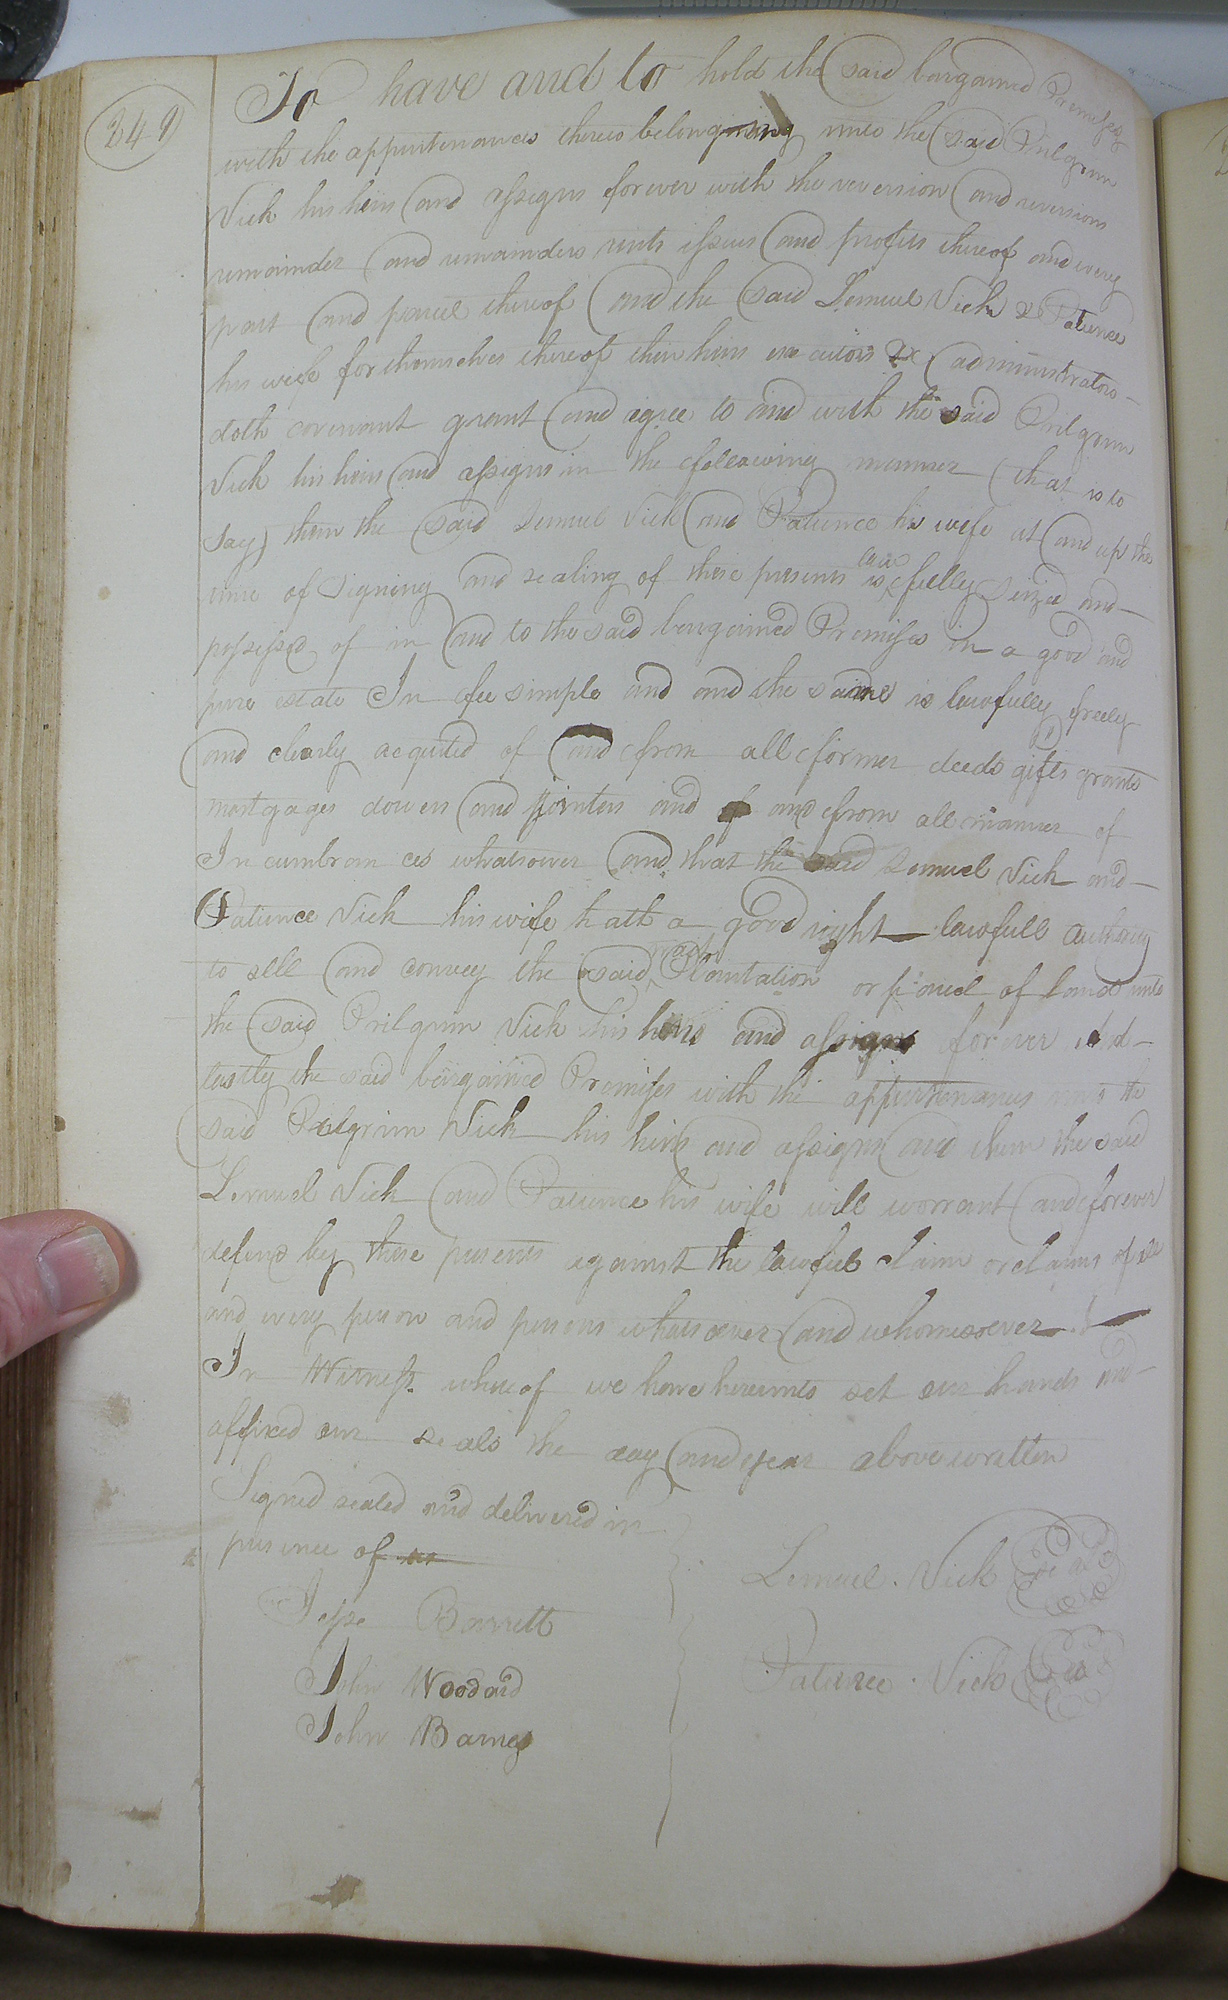 349
To have and to hold the said bargained Premises
with the appurtenances thereto belonging unto the said Pilgrim
Vick his heirs and assigns forever with the reversion and reversions
remainder and remainders rents issues and profits thereof and every
part and parcel thereof and the said Lemuel Vick & Patience
his wife for themselves thereof their heirs executors & administrators
doth covenant grant and agree to and with the said Pilgrim
Vick his heirs and assigns in the following manner (that is to
say) them the said Lemuel Vick and Patience his wife at and up the
time of signing and sealing of these presents is lawfully seized and
possessed of in and to the said bargained Premises in a good and
pure estate In fee simple and and the same is lawfully freely
and clearly acquited of and from all former deeds gifts grants
mortgages dowers and jointers and of and from all manner of
Incumbrances whatsoever and that the said Lemuel Vick and
Patience Vick his wife hath a good right lawfull authority
to sell and convey the said Plantation or parcel of land unto
the said Pilgrim Vick his heirs and assigns forever And
lastly the said bargained Premises with the appurtenances unto the
said Pilgrim Vick his heirs and assigns and them the said
Lemuel Vick and Patience his wife will worrant and forever
defend by these presents against the lawful claim or claims of all
and every person and persons whatsoever and whomsoever
In Witness whereof we have hereunto set our hands and
affixed our seals the day and year above written
Signed sealed and delivered in
presence of us
Lemuel Vick Seal
Jesse Barrett
Patience Vick Seal
John Woodard
John Barnes